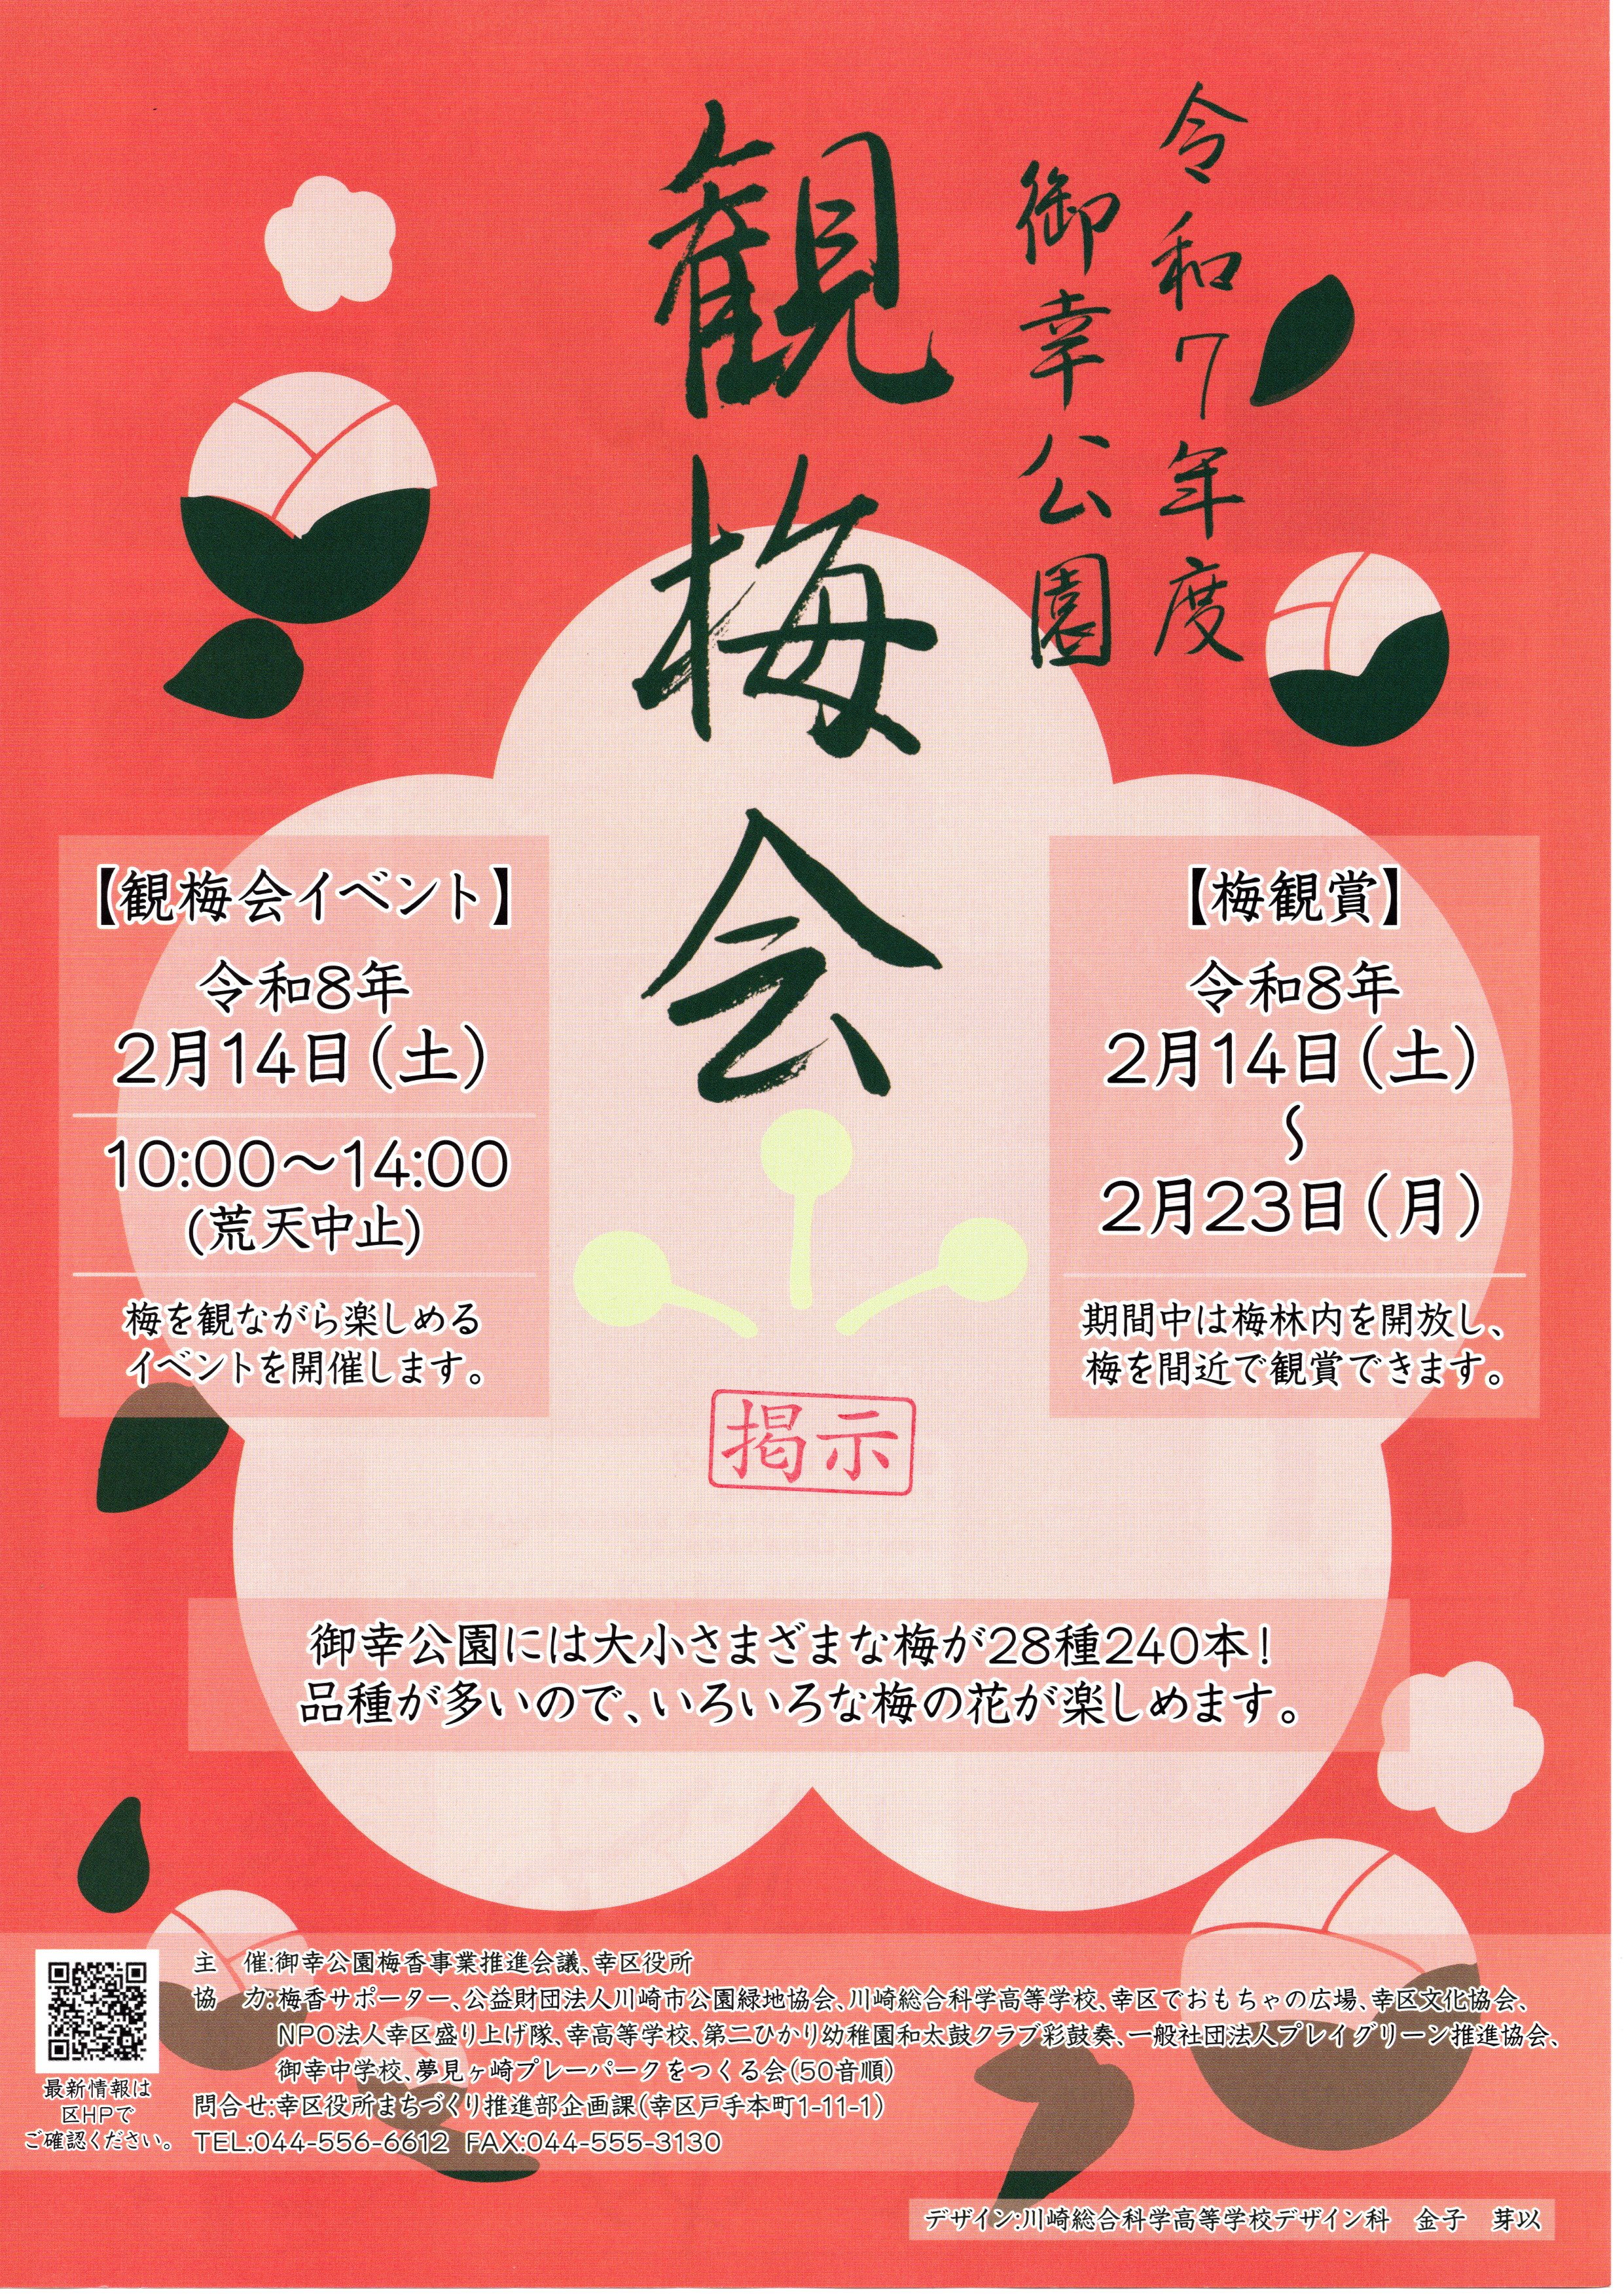 令和7年度
御幸公園
観梅会
【観梅会イベント】
令和8年
2月14日(土)
10:00～14:00
(荒天中止)
梅を観ながら楽しめる
イベントを開催します。
【梅観賞】
令和8年
2月14日(土)
～
2月23日(月)
期間中は梅林内を開放し、
梅を間近で観賞できます。
掲示
御幸公園には大小さまざまな梅が28種240本!
品種が多いので、いろいろな梅の花が楽しめます。
最新情報は
区HPで
ご確認ください。
主　催:御幸公園梅香事業推進会議、幸区役所
協　力:梅香サポーター、公益財団法人川崎市公園緑地協会、川崎総合科学高等学校、幸区でおもちゃの広場、幸区文化協会、
NPO法人幸区盛り上げ隊、幸高等学校、第二ひかり幼稚園和太鼓クラブ彩鼓奏、一般社団法人プレイグリーン推進協会、
御幸中学校、夢見ヶ崎プレーパークをつくる会(50音順)
問合せ:幸区役所まちづくり推進部企画課(幸区戸手本町1-11-1)
TEL:044-556-6612 FAX:044-555-3130
デザイン:川崎総合科学高等学校デザイン科　金子　芽以